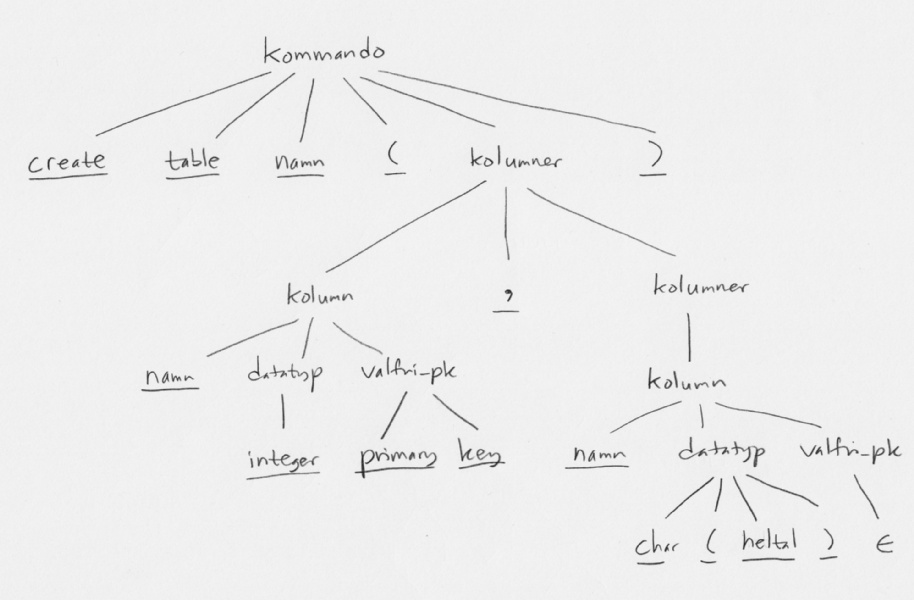 kommando
create table namn ( kolumner )
kolumn , kolumner
namn datatyp valfri-pk kolumn
integer primary key namn datatyp valfri-pk
char ( heltal ) ϵ